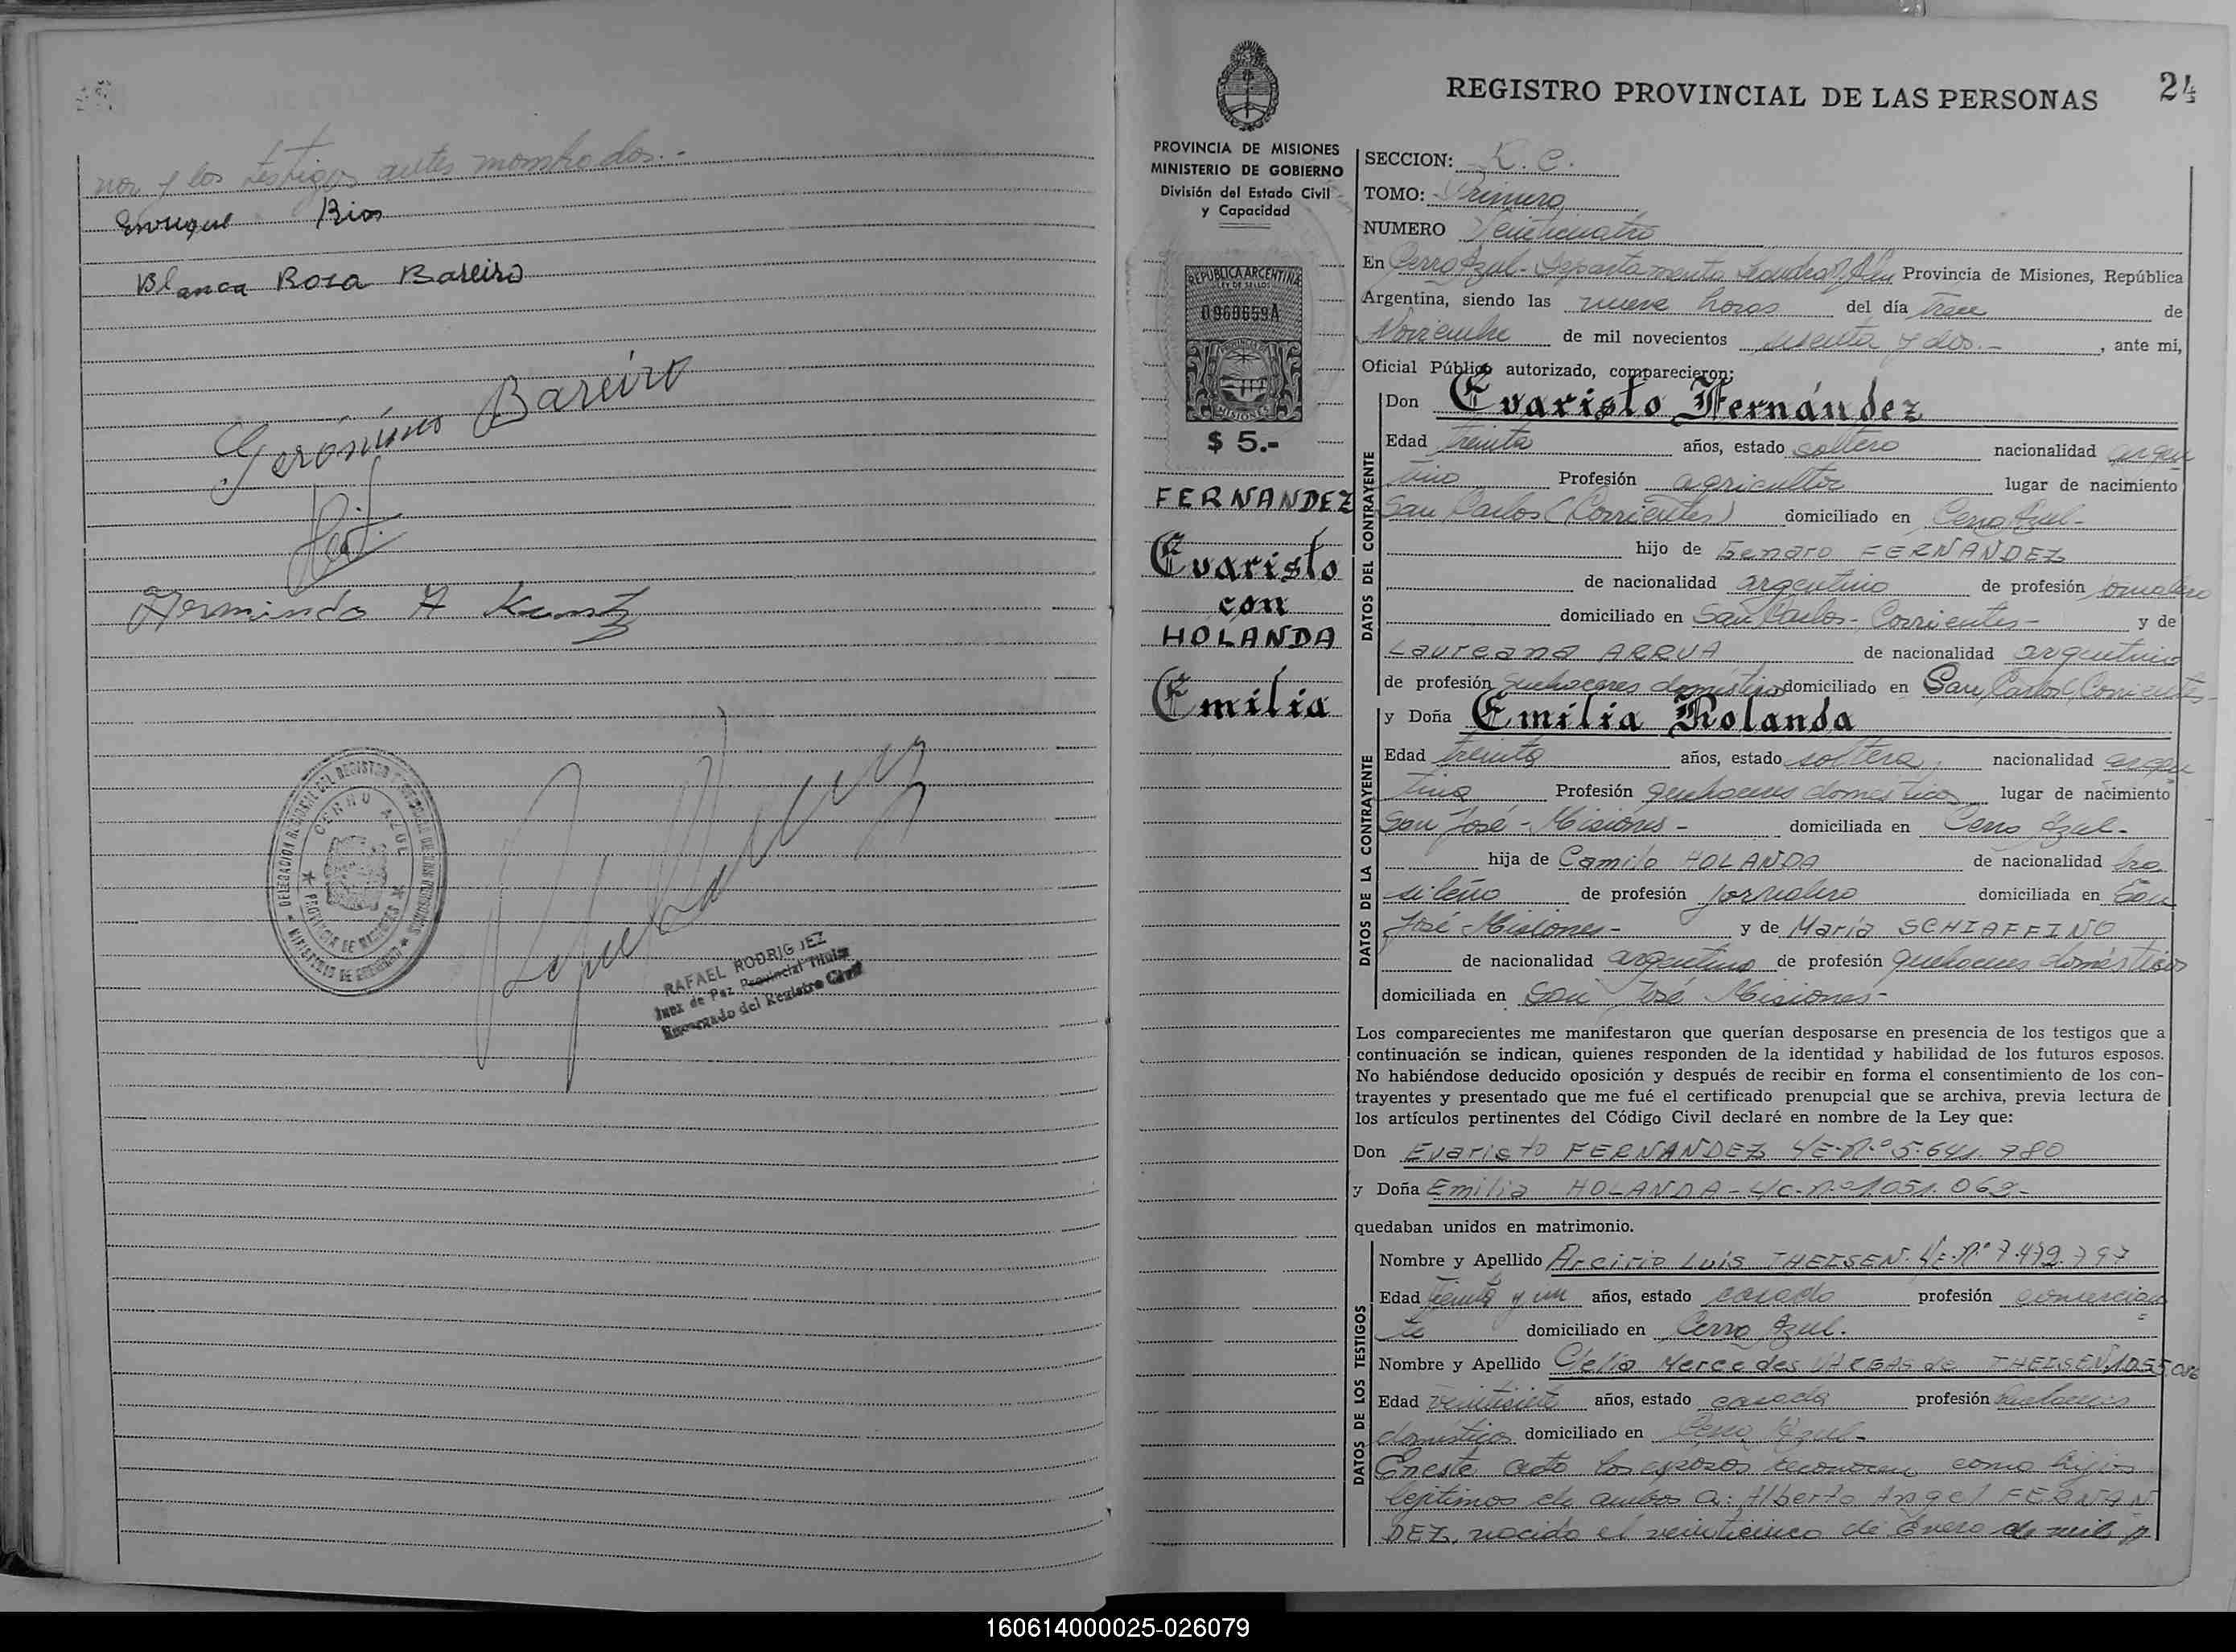 nor y los testigos antes nombrados.-
Enrique Rios
Blanca Rosa Bareiro
Gerónimo Bareiro
Hermindo A Kuntz
DELEGACION REGIONAL DEL REGISTRO
CERRO AZUL
PROVINCIA DE MISIONES
MINISTERIO DE GOBIERNO
RAFAEL RODRIGUEZ
Juez de Paz Provincial Titular
Encargado del Registro Civil
REGISTRO PROVINCIAL DE LAS PERSONAS
24
PROVINCIA DE MISIONES
MINISTERIO DE GOBIERNO
División del Estado Civil
y Capacidad
REPUBLICA ARGENTINA
LEY DE SELLOS
0968659A
PROVINCIA DE
MISIONES
$ 5.-
FERNANDEZ
Evaristo
con
HOLANDA
Emilia
SECCION: R. C.
TOMO: Primero
NUMERO Veinticuatro
En Cerro Azul - Departamento Leandro N. Alem Provincia de Misiones, República
Argentina, siendo las nueve horas del día trece de
Noviembre de mil novecientos sesenta y dos.- , ante mí,
Oficial Público autorizado, comparecieron:
DATOS DEL CONTRAYENTE
Don Evaristo Fernández
Edad treinta años, estado soltero nacionalidad argen
tino Profesión agricultor lugar de nacimiento
San Carlos (Corrientes) domiciliado en Cerro Azul-
hijo de Genaro FERNANDEZ
de nacionalidad argentino de profesión jornalero
domiciliado en San Carlos - Corrientes - y de
Laureana ARRUA de nacionalidad argentina
de profesión quehaceres domésticos domiciliado en San Carlos (Corrientes-
DATOS DE LA CONTRAYENTE
y Doña Emilia Holanda
Edad treinta años, estado soltera, nacionalidad argen
tina Profesión quehaceres domésticos lugar de nacimiento
San José - Misiones - domiciliada en Cerro Azul.-
hija de Camilo HOLANDA de nacionalidad bra
sileño de profesión jornalero domiciliada en San
José Misiones- y de María SCHIAFFINO
de nacionalidad argentina de profesión quehaceres domésticos
domiciliada en San José Misiones-
Los comparecientes me manifestaron que querían desposarse en presencia de los testigos que a
continuación se indican, quienes responden de la identidad y habilidad de los futuros esposos.
No habiéndose deducido oposición y después de recibir en forma el consentimiento de los con-
trayentes y presentado que me fué el certificado prenupcial que se archiva, previa lectura de
los artículos pertinentes del Código Civil declaré en nombre de la Ley que:
Don Evaristo FERNANDEZ L/E-N.º 5.641.780
y Doña Emilia HOLANDA - L/C-n.º 1.051.062-
quedaban unidos en matrimonio.
DATOS DE LOS TESTIGOS
Nombre y Apellido Luis THEISEN. L/E-N.º 7.479.797
Edad treinta y un años, estado casado profesión comercian
te domiciliado en Cerro Azul.
Nombre y Apellido Clelia Mercedes VARGAS de THEISEN 1.055.086
Edad veintisiete años, estado casada profesión quehaceres
domésticos domiciliado en Cerro Azul-
En este acto los esposos reconocen como hijos
legítimos de ambos a: Alberto Angel FERNAN
DEZ, nacido el veinticinco de Enero de mil n
160614000025-026079